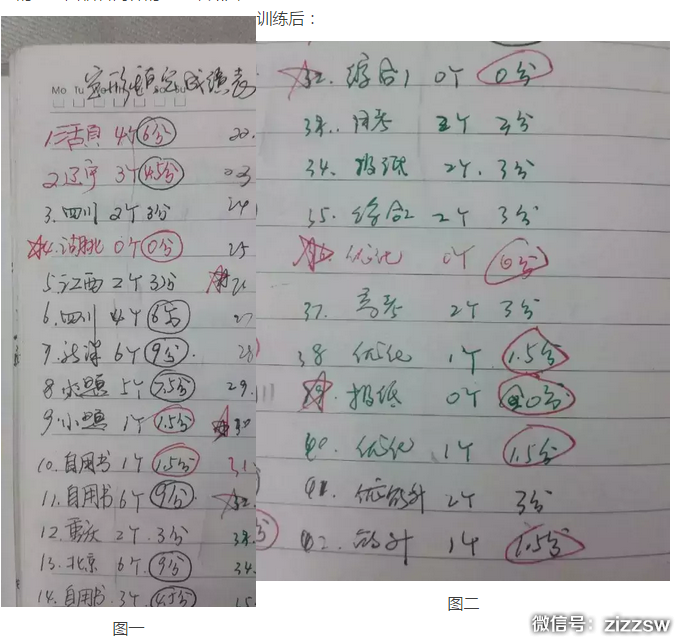 训练后：
定形填空成绩表
Mo Tu
1. 活页 4个 6分
2. 辽宁 3个 4.5分
3. 四川 2个 3分
4. 湖北 0个 0分
5. 江西 2个 3分
6. 四川 4个 6分
7. 6个 9分
8. 小题 5个 7.5分
9. 小题 1个 1.5分
10. 自用书 1个 1.5分
11. 自用书 6个 9分
12. 重庆 2个 3分
13. 北京 6个 9分
14. 自用书 3个 4.5分
24
25
29.
31
34.
综合1 0个 0分
2个 3分
34. 报纸 2个 3分
35. 综合2 2个 3分
优化 0个 0分
37. 高考 2个 3分
38 优化 1个 1.5分
报纸 0个 0分
40. 优化 1个 1.5分
2个 3分
42. 1个 1.5分
图一
图二
微信号：zizzsw